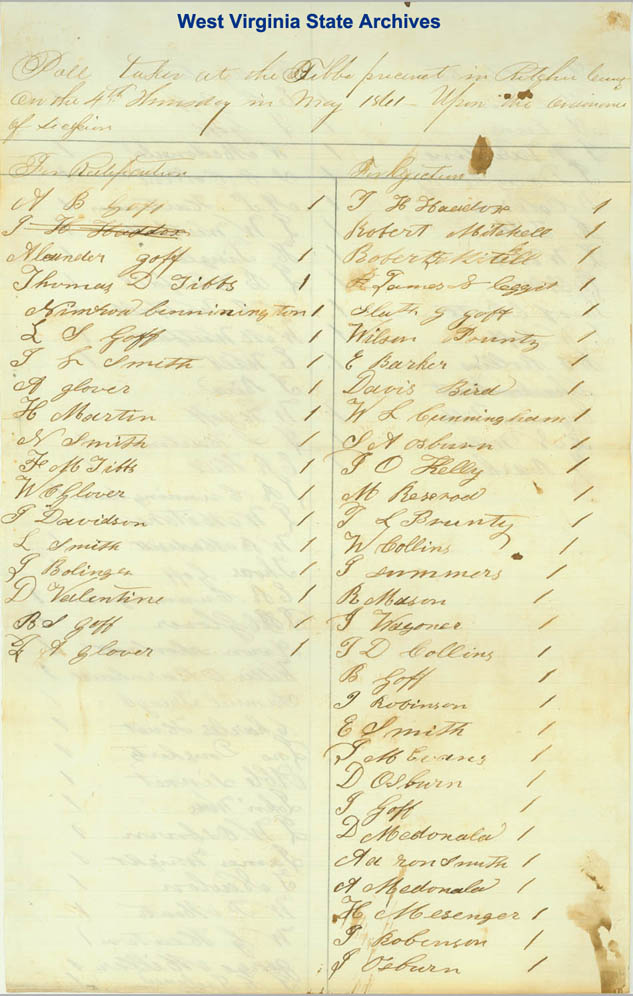 West Virginia State Archives
Poll taken at the Tibbs precinct in Ritchie
on the 4th Thursday in May 1861 - Upon the
of
For Ratification
A B Goff 1
T H Haddox
Alexander goff 1
Thomas D Tibbs 1
bennington 1
L S Goff 1
T L Smith 1
A glover 1
H Martin 1
N Smith 1
F M Tibbs 1
W C Glover 1
T Davidson 1
L Smith 1
J Bolinger 1
D Valentine 1
B S goff 1
A glover 1
For Rejection
T H Haddox 1
Robert Mitchell 1
Robert 1
James S 1
goff 1
Wilson Prunty 1
E Barker 1
Davis Bird 1
W L Cunningham 1
S A Osburn 1
T O Kelly 1
M 1
T L Prunty 1
W Collins 1
J summers 1
R Mason 1
J Wagoner 1
T D Collins 1
B Goff 1
J Robinson 1
E Smith 1
J M Evans 1
D Osburn 1
J Goff 1
D Mcdonald 1
Aa ron Smith 1
A Mcdonald 1
H Mesenger 1
J Robinson 1
J Osburn 1